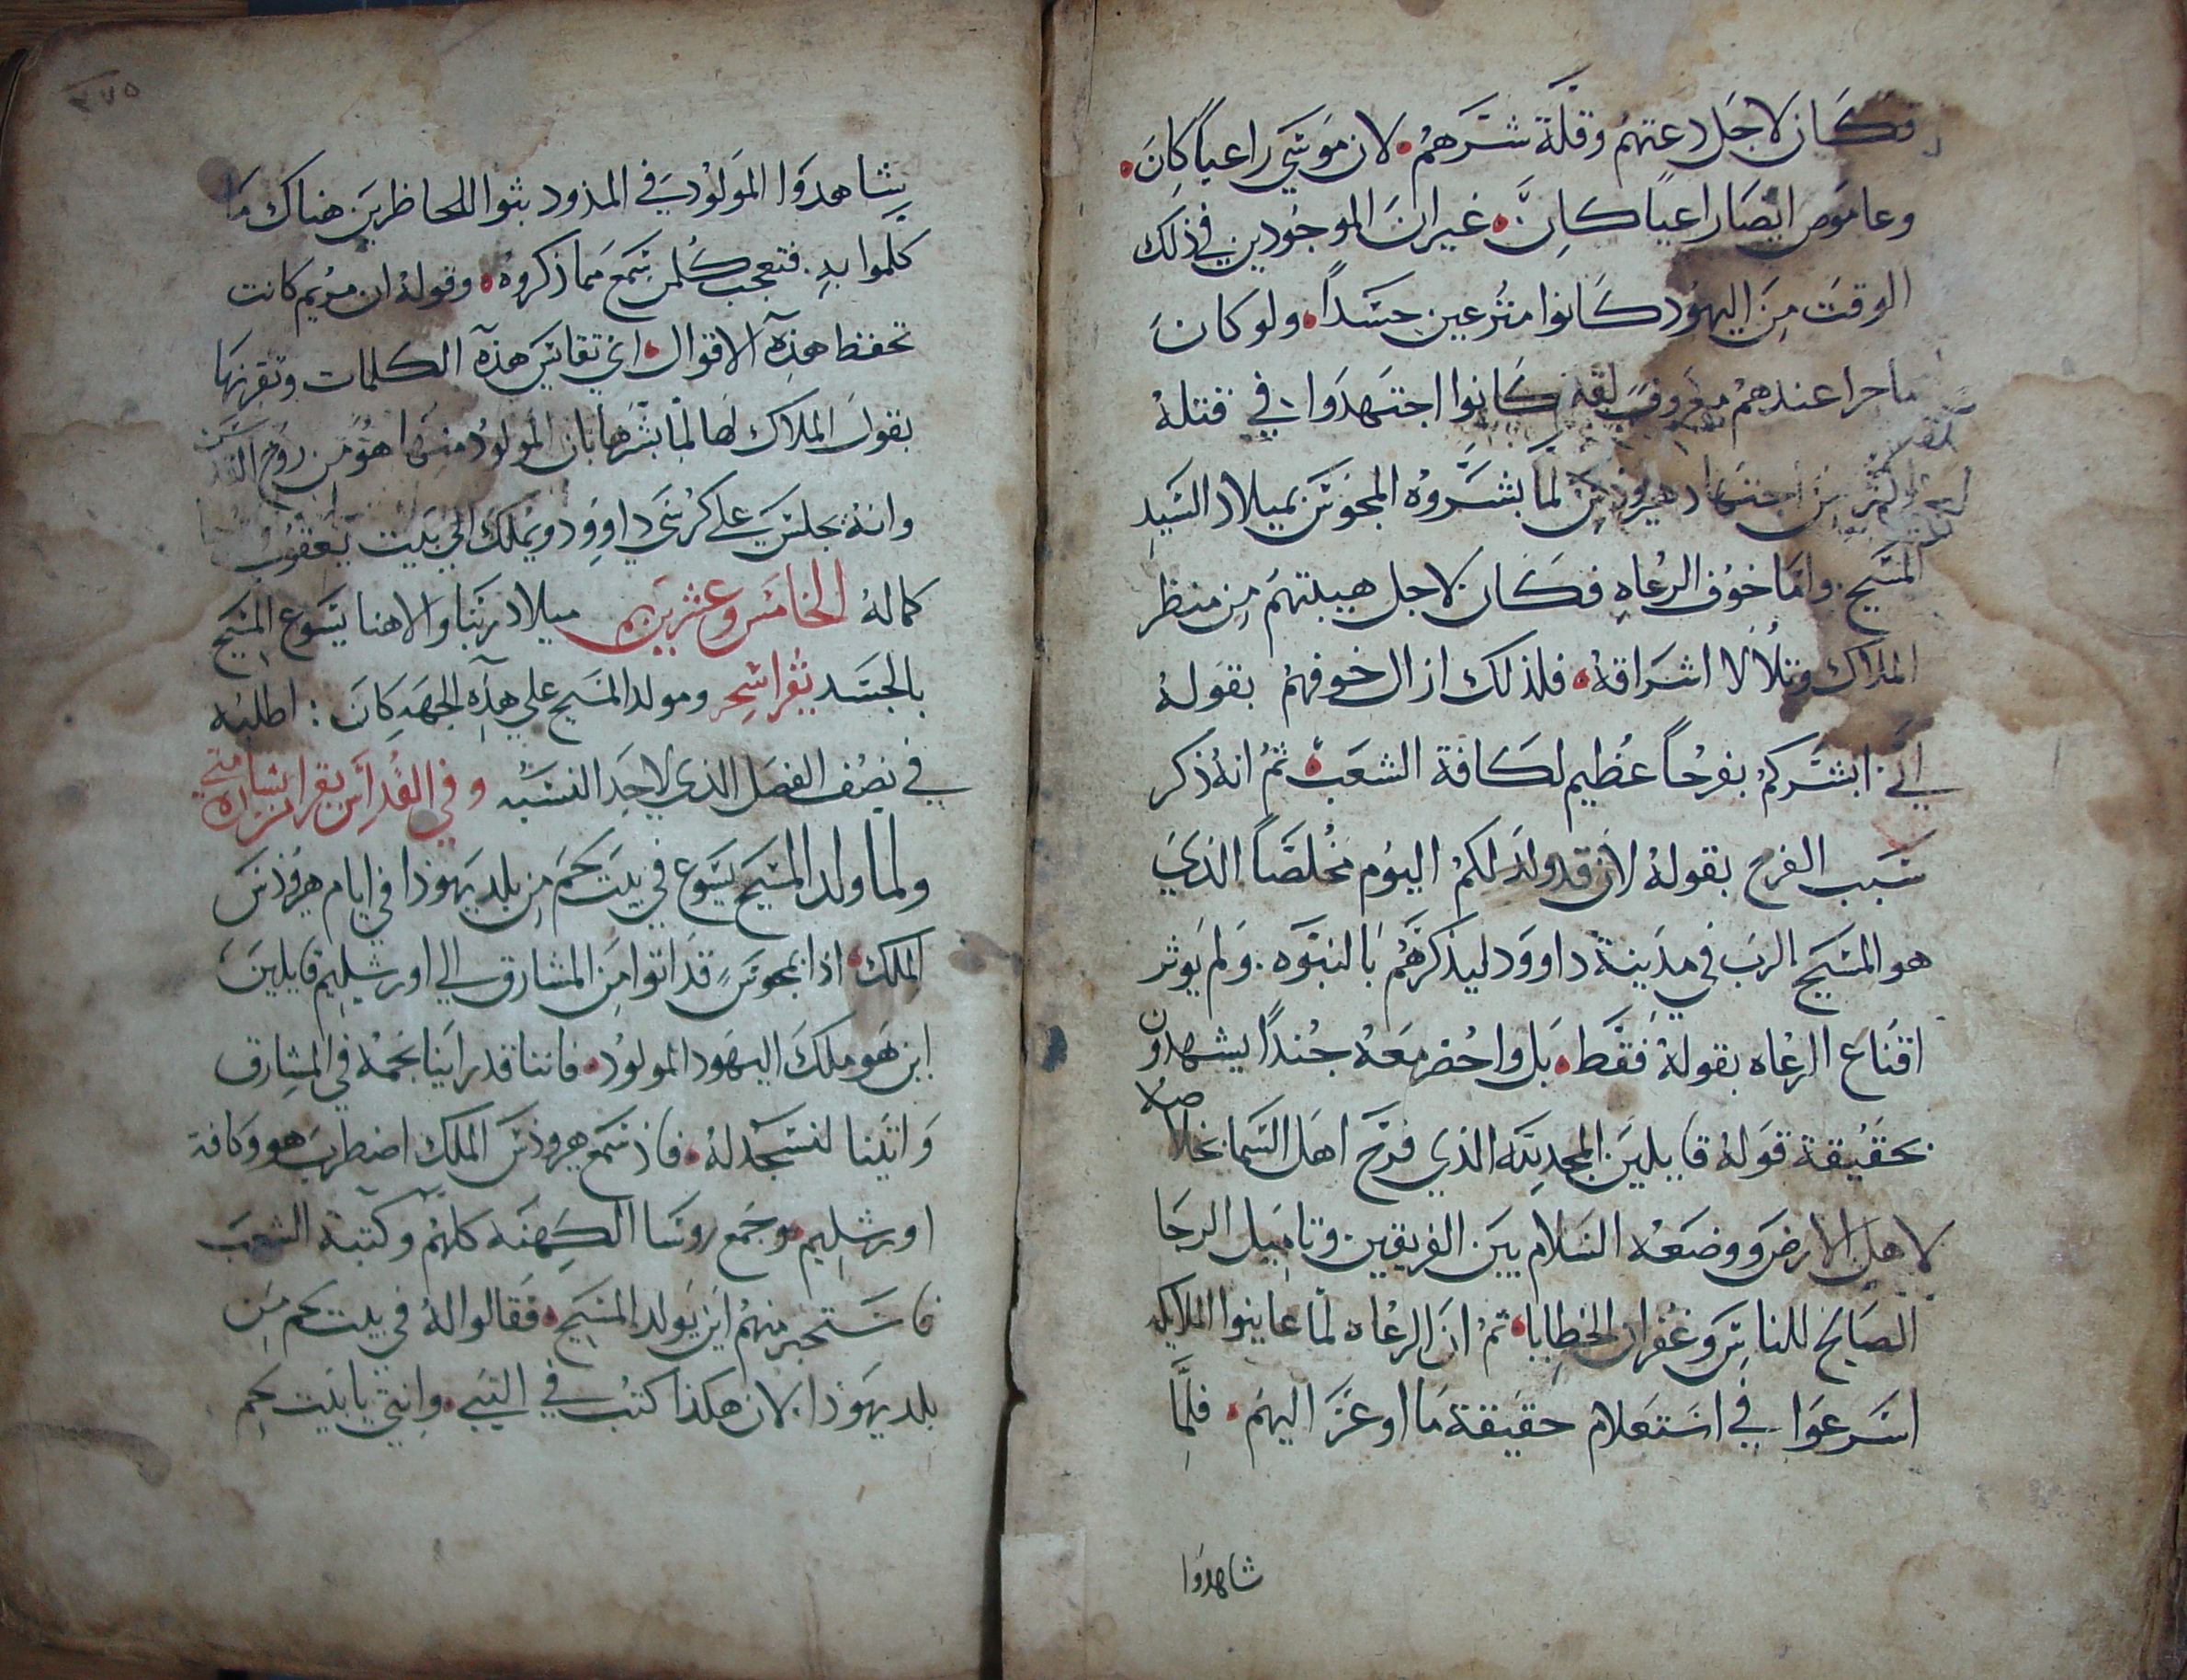 فكان لاجل دعتهم وقلة شرهم لان موسي راعياً كان
وعاموص ايضا راعياً كان غير ان الموجودين في ذلك
الوقت من اليهود كانوا مترعين حسداً ولو كان
ما جرا عندهم معروف لقد كانوا اجتهدوا في قتله
اكثر من اجتهاد هيرودس لما بشروه المجوس بميلاد السيد
المسيح واما خوف الرعاه فكان لاجل هيبتهم من منظر
الملاك وتلالا اشراقه فلذلك ازال خوفهم بقوله
اني ابشركم بفرحاً عظيم لكافة الشعب ثم انه ذكر
سبب الفرح بقوله لان قد ولد لكم اليوم مخلصاً الذي
هو المسيح الرب في مدينة داوود ليذكرهم بالنبوه ولم يوثر
اقناع الرعاه بقوله فقط بل واحضر معه جنداً يشهدون
بحقيقة قوله قايلين المجد لله الذي فرح اهل السما بخلاصه
لاهل الارض ووضعه السلام بين الفريقين وتاميل الرجا
الصالح للناس وغفران الخطايا ثم ان الرعاه لما عاينوا الملايكه
اسرعوا في استعلام حقيقة ما اوعز اليهم فلما
شاهدوا
٢٧٥
يشاهدوا المولود في المذود بثوا للحاظرين هناك ما
كلموا به فتعجب كلمن سمع مما ذكروه وقوله ان مريم كانت
تحفظ هذه الاقوال اي تقايس هذه الكلمات وتقرنها
بقول الملاك لها لما بشرها بان المولود منها هو من روح القدس
وانه يجلس علي كرسي داوود ويملك الي بيت يعقوب
كماله الخامس وعشرين ميلاد ربنا والاهنا يسوع المسيح
بالجسد يقرا سحر ومولد المسيح علي هذه الجهه كان : اطلبه
في نصف الفصل الذي لاحد النسبه وفي القداس يقرا بشارة متي
ولما ولد المسيح يسوع في بيت لحم من بلد يهوذا في ايام هرودس
الملك اذا بمجوس قد اتوا من المشارق الي اورشليم قايلين
اين هو ملك اليهود المولود فاننا قد راينا نجمه في المشارق
واتينا لنسجد له فاذ سمع هرودس الملك اضطرب هو وكافة
اورشليم وجمع روسا الكهنه كلهم وكتبة الشعب
فاستخبر منهم اين يولد المسيح فقالوا له في بيت لحم من
بلد يهوذا لان هكذا كتب في النبي وانتي يا بيت لحم